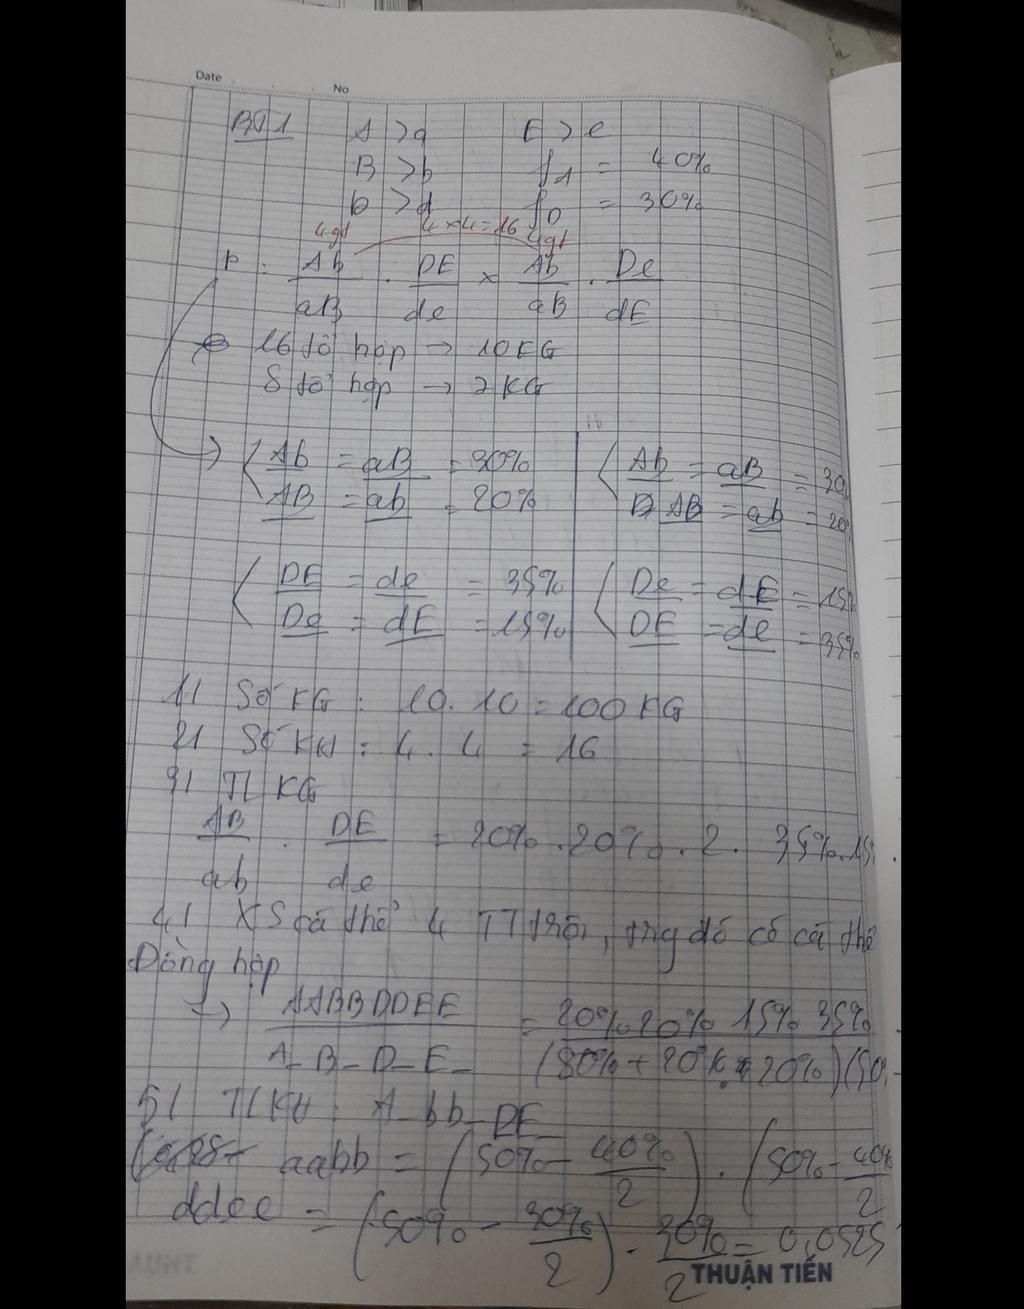 Date No
BT1 A > a E > e
B > b fA = 40%
D > d fD = 30%
4gt 4×4=16 4gt
P: Ab/aB . DE/de × Ab/aB . De/dE
16 tổ hợp → 10 KG
8 tổ hợp → 7 KG
Ab = aB = 30% Ab = aB = 30
AB = ab = 20% AB = ab = 20
DE = de = 35% De = dE = 15%
De = dE = 15% DE = de = 35%
1/ Số KG: 10.10 = 100 KG
2/ Số KH: 4.4 = 16
3/ TL KG
AB/ab . DE/de = 20%.20%.2. 35%.15
4/ XS cá thể 4 TT trội, trg đó có cá thể
Đồng hợp
→ AABBDDEE / A-B-D-E- = 20% 20% 15% 35% / (50% + 20%.20%)(50
5/ TLKH: A-bb-DE
aabb = (50% - 40%/2).(50% - 40%/2
ddee = (50% - 30%/2).30%/2 = 0,0525
THUẬN TIẾN